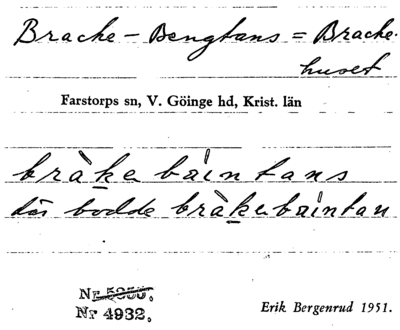 Bracke-Bengtans = Bracke-
huset
Farstorps sn, V. Göinge hd, Krist. län
bràke báintans
där bodde bràkebáintan
Nr 5350.
Nr 4932.
Erik Bergenrud 1951.